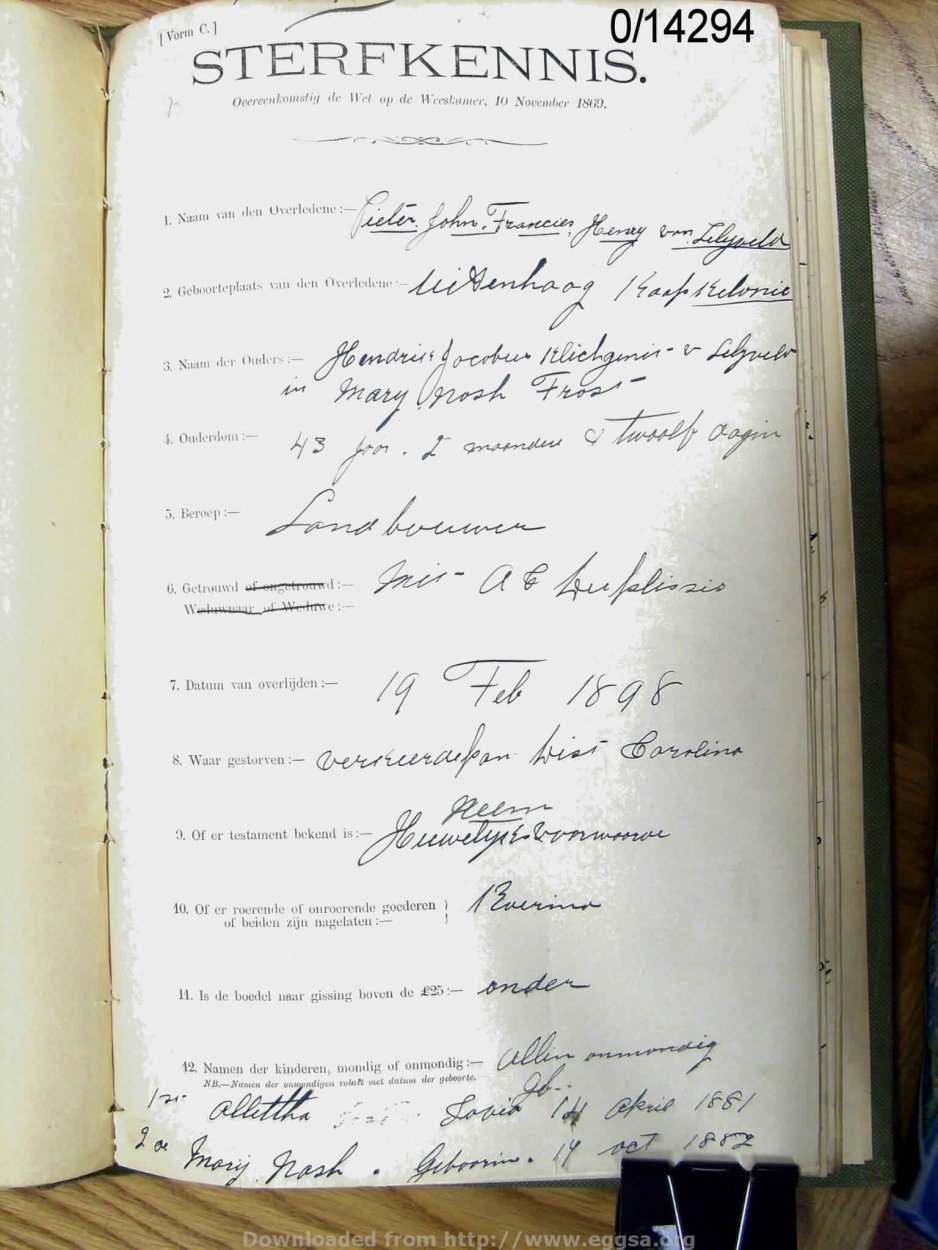 0/14294
[Vorm C.]
STERFKENNIS.
Overeenkomstig de Wet op de Weeskamer, 10 November 1869.
1. Naam van den Overledene :— Pieter John Francies Henry van Lelyveld
2. Geboorteplaats van den Overledene — Uitenhaag Kaap Kelonie
3. Naam der Ouders :— Hendrick Jacobus v Lelyveld
in Mary Nash Frost
4. Ouderdom :— 43 Jaar . 2 maanden & twaalf dagin
5. Beroep :— Landbouwer
6. Getrouwd of ongetrouwd :— A C Duplissis
Weduwnaar of Weduwe :—
7. Datum van overlijden :— 19 Feb 1898
8. Waar gestorven :— Verkeerdepan Dist Carolina
Neem
9. Of er testament bekend is :— Huwelyks Voorwaarde
10. Of er roerende of onroerende goederen } Roerind
of beiden zijn nagelaten :—
11. Is de boedel naar gissing boven de £25 :— onder
12. Namen der kinderen, mondig of onmondig :— Allin onmondig
NB.—Namen der onmondigen voluit met datum der geboorte.
Gb.
1st Allettha Sovia 14 April 1881
2de Mary Nash . Geboorin . 14 oct 1882
Downloaded from http://www.eggsa.org